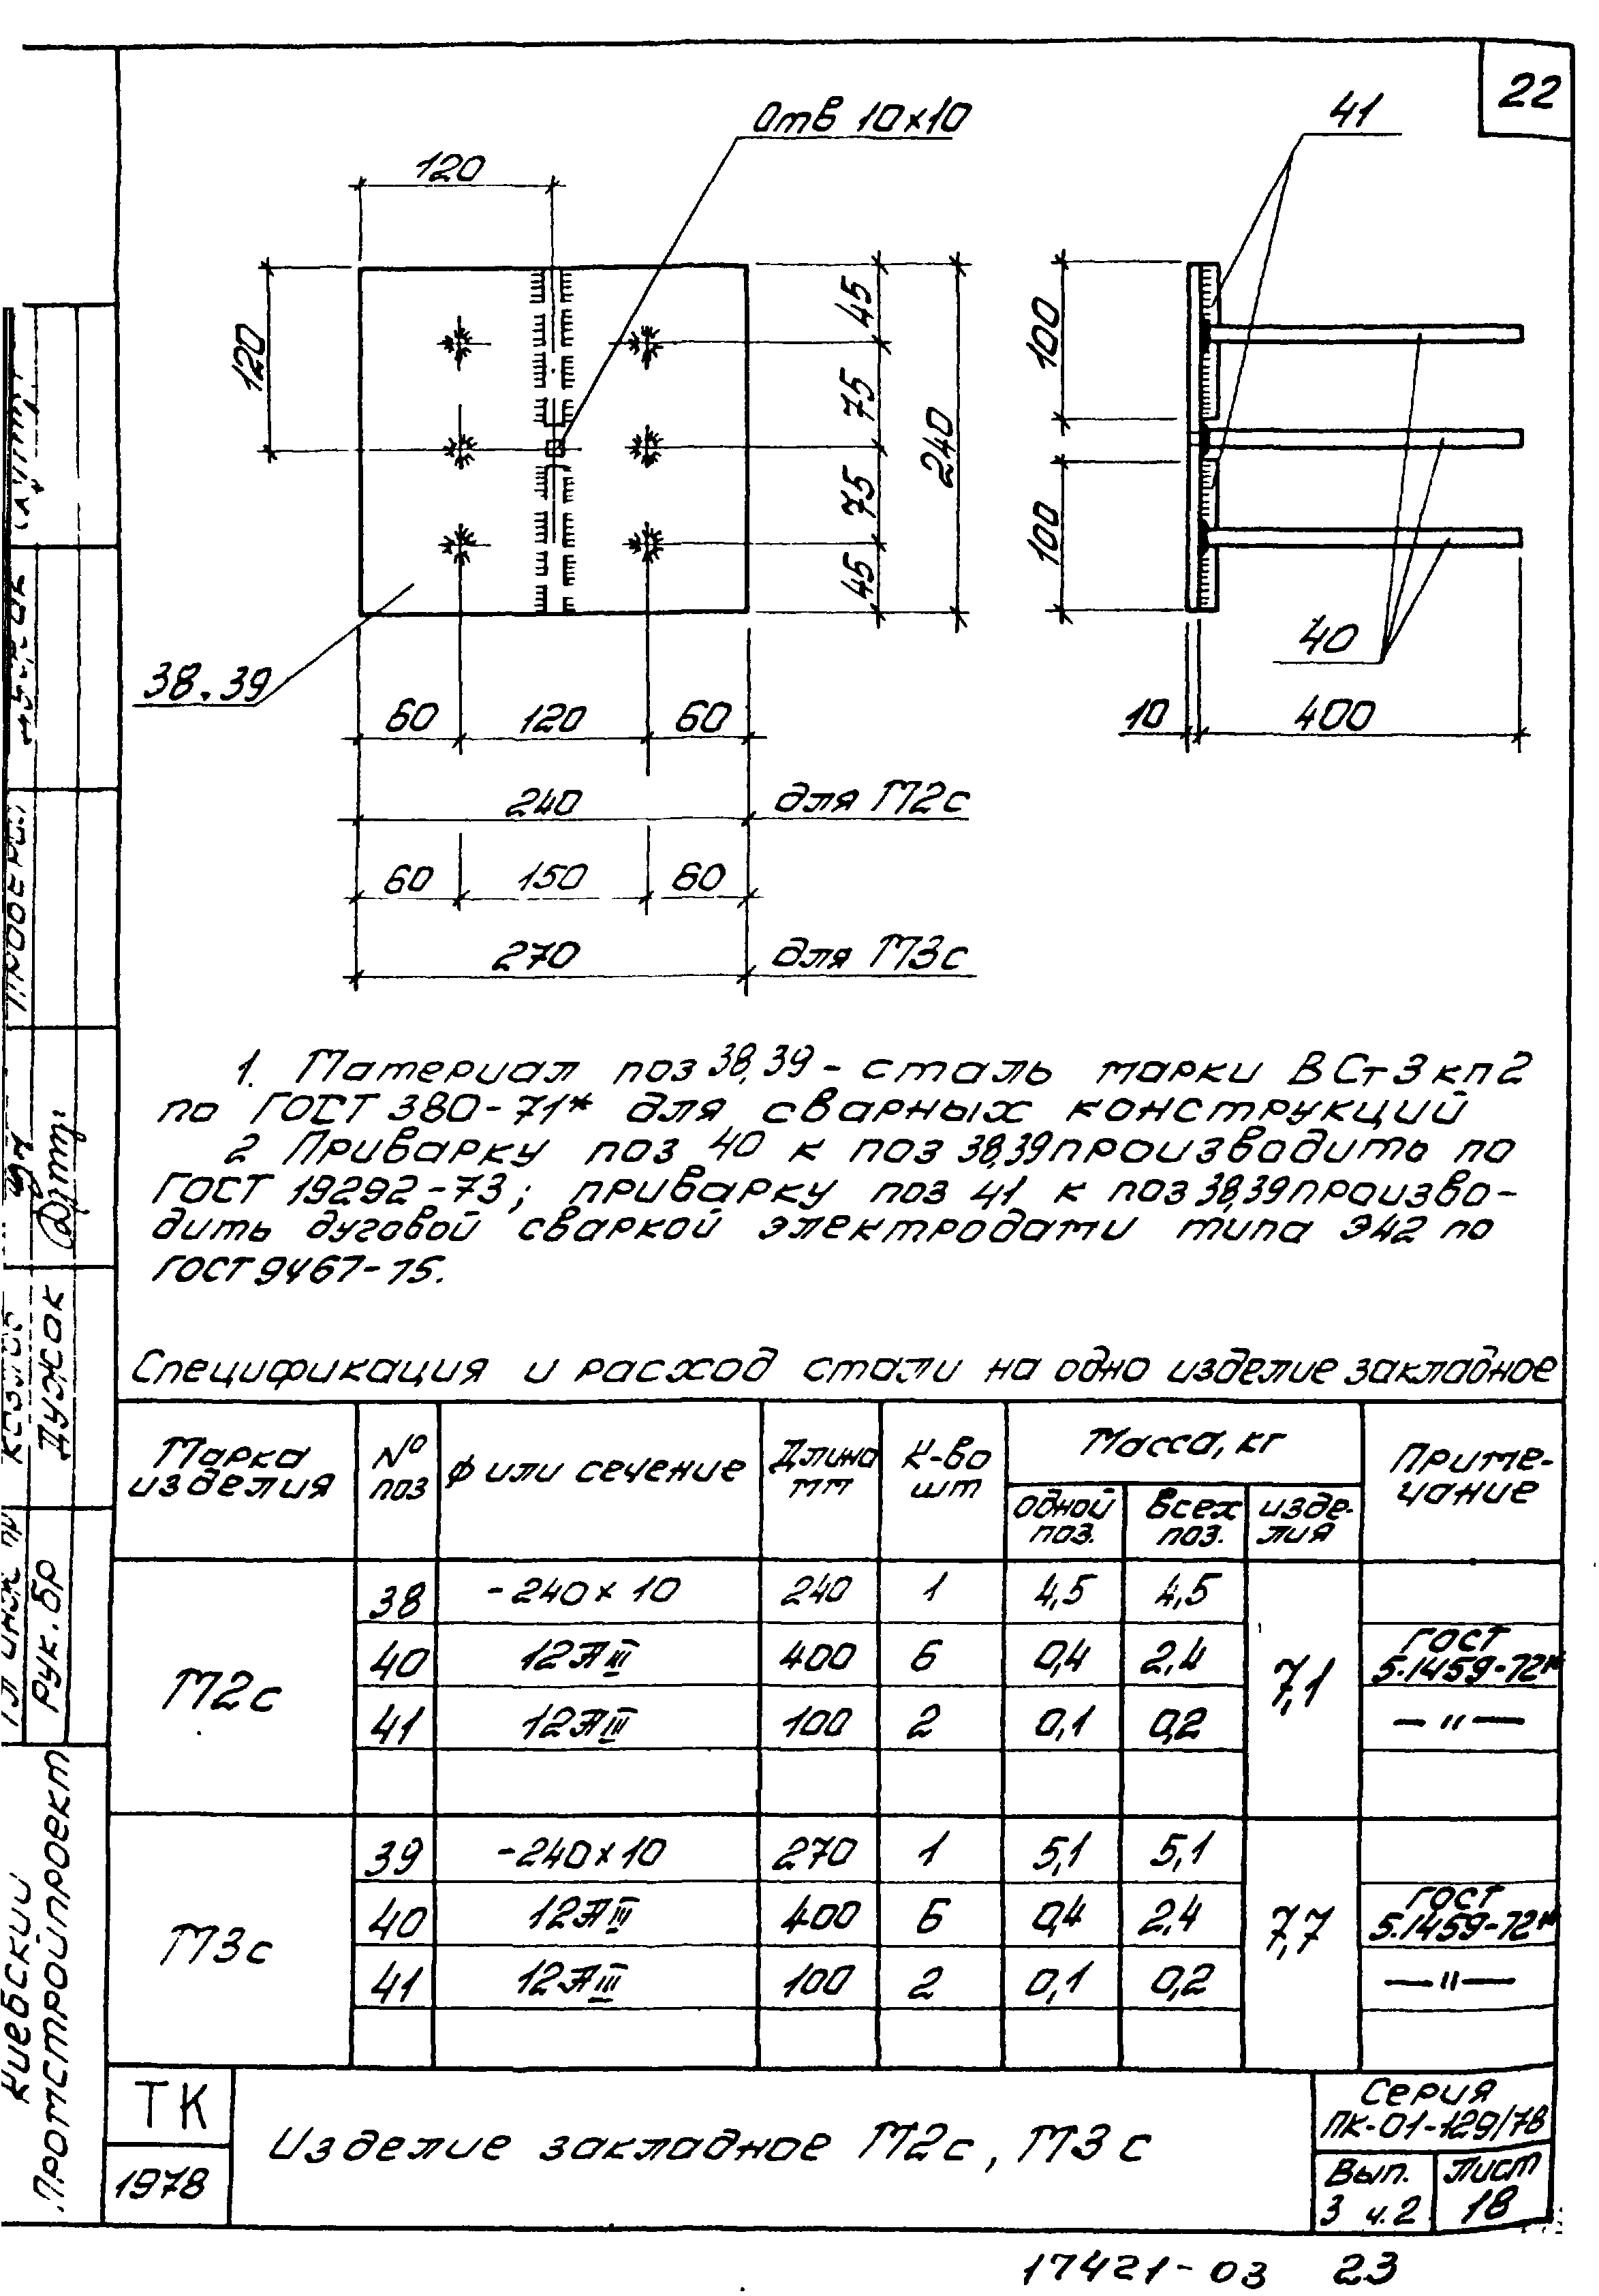 22
Отв 10×10
41
120
120
45
75
75
45
240
100
100
40
38.39
60 120 60
10 400
240 для М2с
60 150 60
270 для М3с
1. Материал поз 38,39 - сталь марки ВСт3кп2
по ГОСТ 380-71* для сварных конструкций
2 Приварку поз 40 к поз 38,39 производить по
ГОСТ 19292-73; приварку поз 41 к поз 38,39 произво-
дить дуговой сваркой электродами типа Э42 по
ГОСТ 9467-75.
Спецификация и расход стали на одно изделие закладное
Марка изделия № поз Ф или сечение Длина мм К-во шт Масса, кг Приме-чание
одной поз. всех поз. изде-лия
М2с 7,1
38 -240×10 240 1 4,5 4,5
40 12АIII 400 6 0,4 2,4 ГОСТ 5.1459-72*
41 12АIII 100 2 0,1 0,2 —"—
М3с 7,7
39 -240×10 270 1 5,1 5,1
40 12АIII 400 6 0,4 2,4 ГОСТ 5.1459-72*
41 12АIII 100 2 0,1 0,2 —"—
ТК
1978
Изделие закладное М2с, М3с
Серия
ПК-01-129/78
Вып.
3 ч.2
Лист
18
17421-03 23
Киевский
Промстройпроект
Гл инж пр
Рук. бр
Дужак